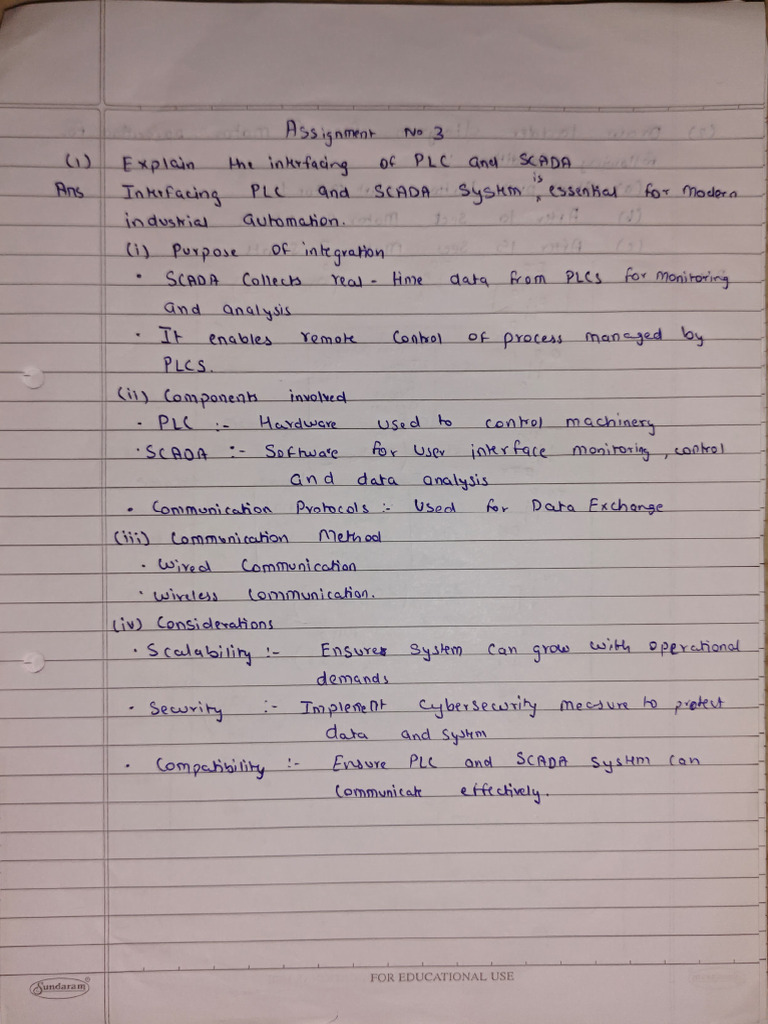 Assignment No 3
(1) Explain the interfacing of PLC and SCADA
Ans Interfacing PLC and SCADA System is, essential for modern
industrial automation.
(i) Purpose of integration
• SCADA collects real-time data from PLCs for monitoring
and analysis
• It enables remote control of process managed by
PLCS.
(ii) Components involved
• PLC :- Hardware used to control machinery
• SCADA :- Software for user interface monitoring, control
and data analysis
• Communication Protocols :- Used for Data Exchange
(iii) Communication Method
• Wired Communication
• Wireless Communication.
(iv) Considerations
• Scalability :- Ensures System can grow with operational
demands
• Security :- Implement Cybersecurity measure to protect
data and system
• Compatibility :- Ensure PLC and SCADA system can
Communicate effectively.
Sundaram®
FOR EDUCATIONAL USE